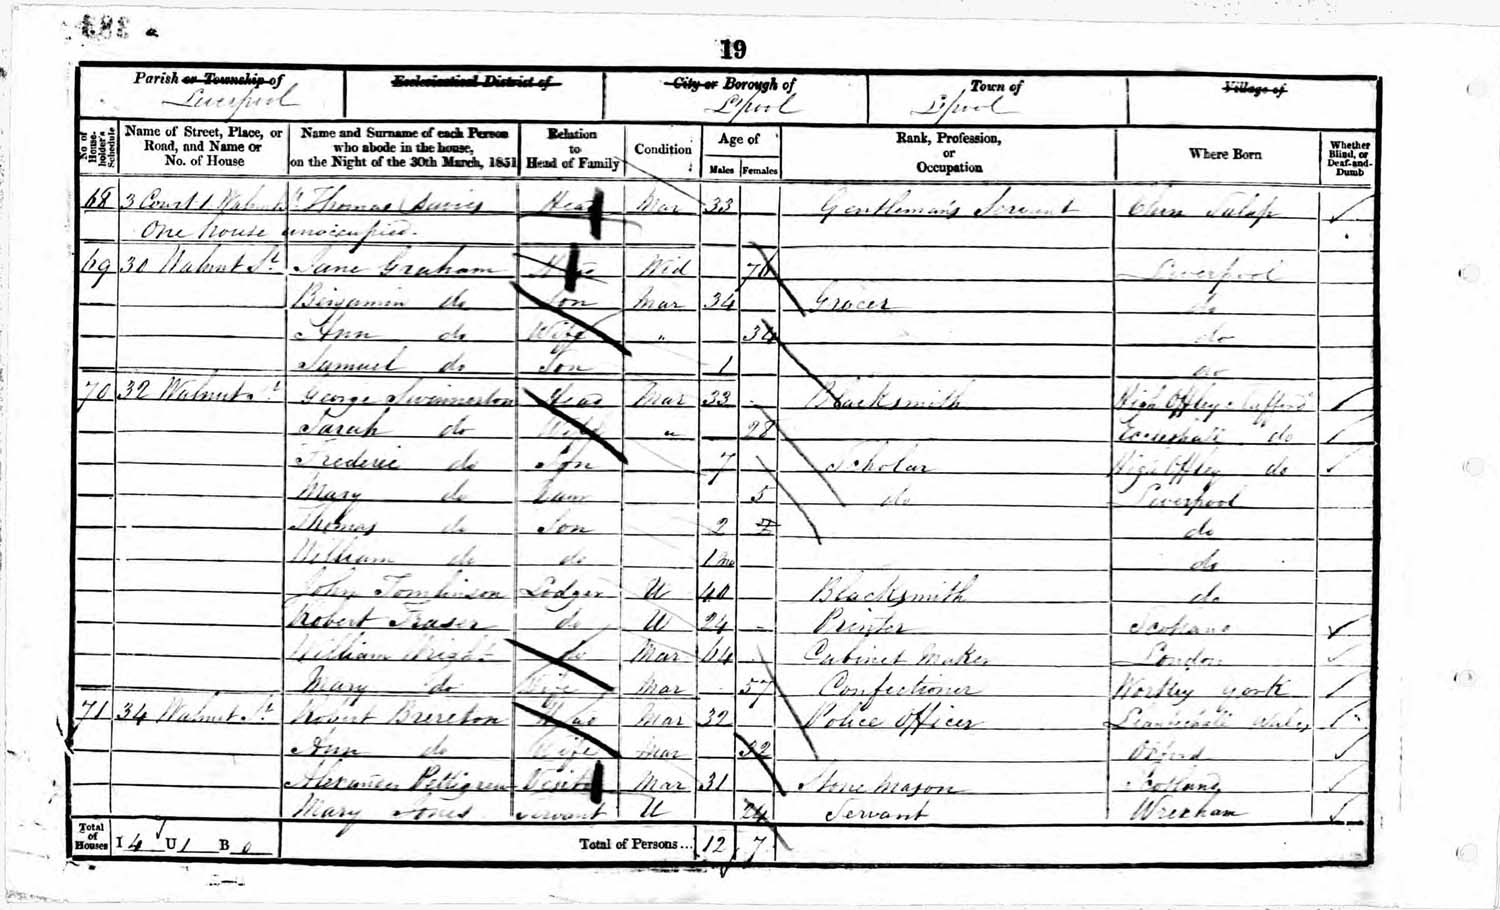 19
Parish or Township of Ecclesiastical District of City or Borough of Town of Village of
Liverpool L'pool L'pool
No of House-holder's Schedule Name of Street, Place, or Road, and Name or No. of House Name and Surname of each Person who abode in the house, on the Night of the 30th March, 1851 Relation to Head of Family Condition Age of Males Females Rank, Profession, or Occupation Where Born Whether Blind, or Deaf-and-Dumb
68 3 Court 1 Walnut St Thomas Davies Head Mar 33 Gentleman's Servant Clun Salop
One house unoccupied.
69 30 Walnut St Jane Graham Head Wid 76 Liverpool
Benjamin do Son Mar 34 Grocer do
Ann do Wife " 34 do
Samuel do Son 1 do
70 32 Walnut St George Swinnerton Head Mar 33 Blacksmith High Offley Stafford
Sarah do Wife " 28 Eccleshall do
Frederic do Son 7 Scholar High Offley do
Mary do Daur 5 do Liverpool
Thomas do Son 2 do
William do do 1 mo do
John Tomlinson Lodger U 40 Blacksmith do
Robert Fraser do U 24 Printer Scotland
William Wright do Mar 64 Cabinet Maker London
Mary do Wife Mar 57 Confectioner Wortley York
71 34 Walnut St Robert Brereton Head Mar 32 Police Officer Wales
Ann do Wife Mar 32 Oxford
Alexander Pettigrew Visitor Mar 31 Stone Mason Scotland
Mary Jones Servant U 24 Servant Wrexham
Total of Houses I 4 U 1 B 0 Total of Persons... 12 7